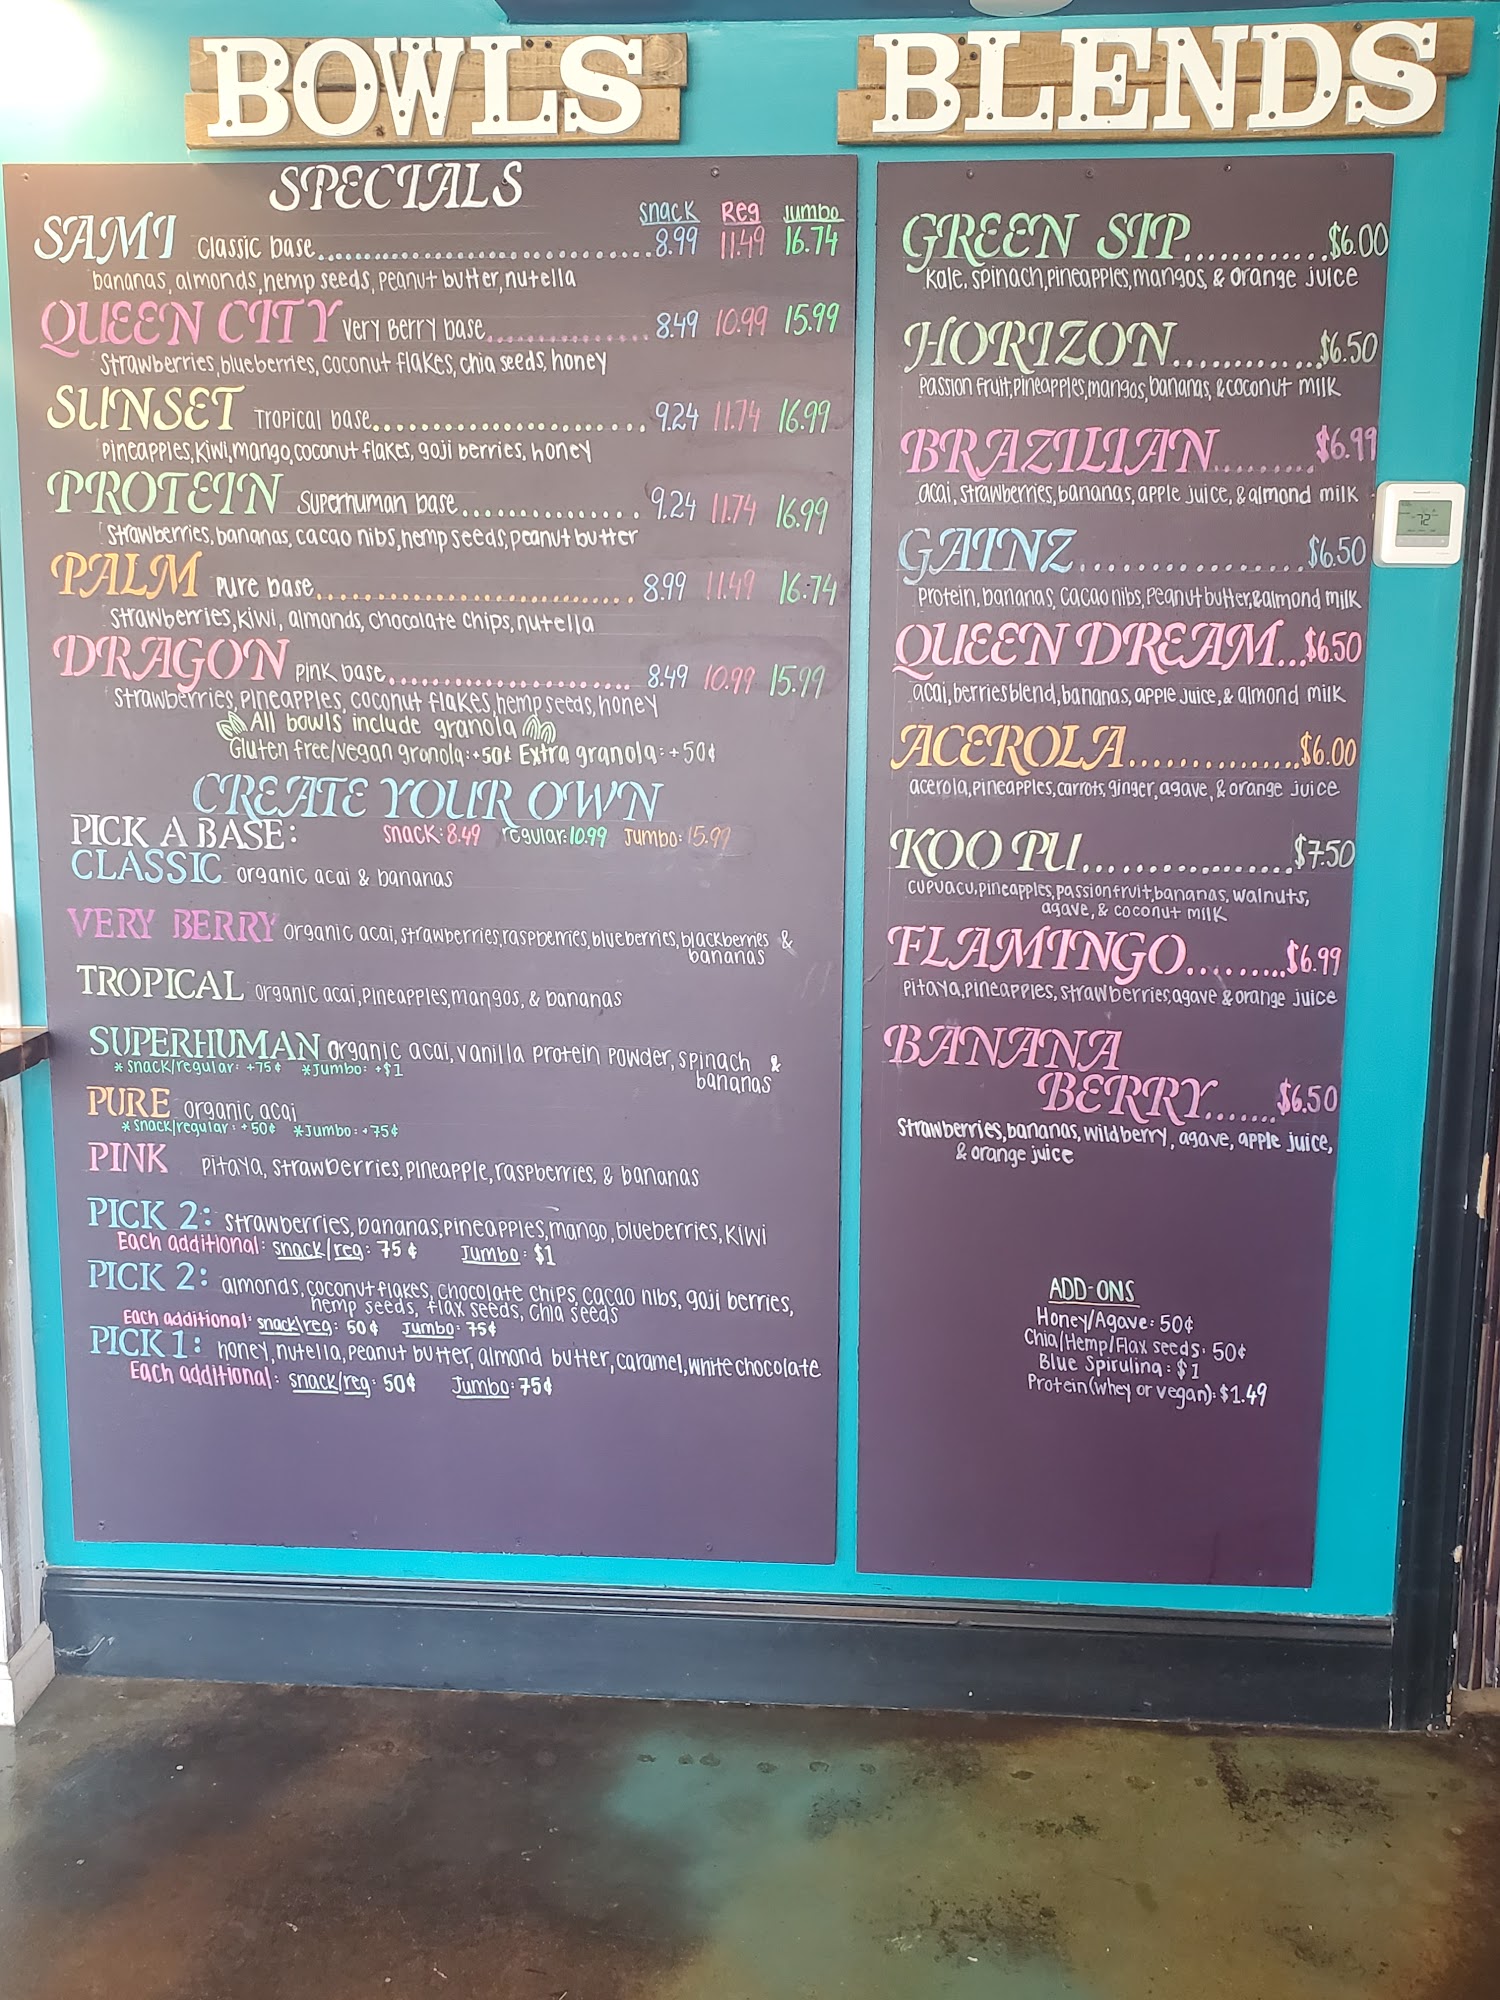 BOWLS
SPECIALS
snack Reg Jumbo
SAMI Classic base 8.99 11.49 16.74
bananas, almonds, hemp seeds, peanut butter, nutella
QUEEN CITY Very Berry base 8.49 10.99 15.99
strawberries, blueberries, coconut flakes, chia seeds, honey
SUNSET Tropical base 9.24 11.74 16.99
pineapples, kiwi, mango, coconut flakes, goji berries, honey
PROTEIN Superhuman base 9.24 11.74 16.99
strawberries, bananas, cacao nibs, hemp seeds, peanut butter
PALM Pure base 8.99 11.49 16.74
strawberries, kiwi, almonds, chocolate chips, nutella
DRAGON Pink base 8.49 10.99 15.99
strawberries, pineapples, coconut flakes, hemp seeds, honey
All bowls include granola
Gluten free/vegan granola: +50¢ Extra granola: +50¢
CREATE YOUR OWN
PICK A BASE: snack: 8.49 regular: 10.99 Jumbo: 15.99
CLASSIC organic acai & bananas
VERY BERRY organic acai, strawberries, raspberries, blueberries, blackberries &
bananas
TROPICAL organic acai, pineapples, mangos, & bananas
SUPERHUMAN organic acai, vanilla protein powder, spinach &
bananas
* snack/regular: +75¢ *Jumbo: +$1
PURE organic acai
* snack/regular: +50¢ *Jumbo: +75¢
PINK pitaya, strawberries, pineapple, raspberries, & bananas
PICK 2: strawberries, bananas, pineapples, mango, blueberries, kiwi
Each additional: snack/reg: 75¢ Jumbo: $1
PICK 2: almonds, coconut flakes, chocolate chips, cacao nibs, goji berries,
hemp seeds, flax seeds, chia seeds
Each additional: snack/reg: 50¢ Jumbo: 75¢
PICK 1: honey, nutella, peanut butter, almond butter, caramel, white chocolate
Each additional: snack/reg: 50¢ Jumbo: 75¢
BLENDS
GREEN SIP $6.00
kale, spinach, pineapples, mangos, & orange juice
HORIZON $6.50
passion fruit, pineapples, mangos, bananas, & coconut milk
BRAZILIAN $6.99
acai, strawberries, bananas, apple juice, & almond milk
GAINZ $6.50
protein, bananas, cacao nibs, peanut butter, & almond milk
QUEEN DREAM $6.50
acai, berries blend, bananas, apple juice, & almond milk
ACEROLA $6.00
acerola, pineapples, carrots, ginger, agave, & orange juice
KOO PU $7.50
cupuacu, pineapples, passion fruit, bananas, walnuts,
agave, & coconut milk
FLAMINGO $6.99
pitaya, pineapples, strawberries, agave & orange juice
BANANA
BERRY $6.50
strawberries, bananas, wildberry, agave, apple juice,
& orange juice
ADD-ONS
Honey/Agave: 50¢
Chia/Hemp/Flax seeds: 50¢
Blue Spirulina: $1
Protein (whey or vegan): $1.49
72